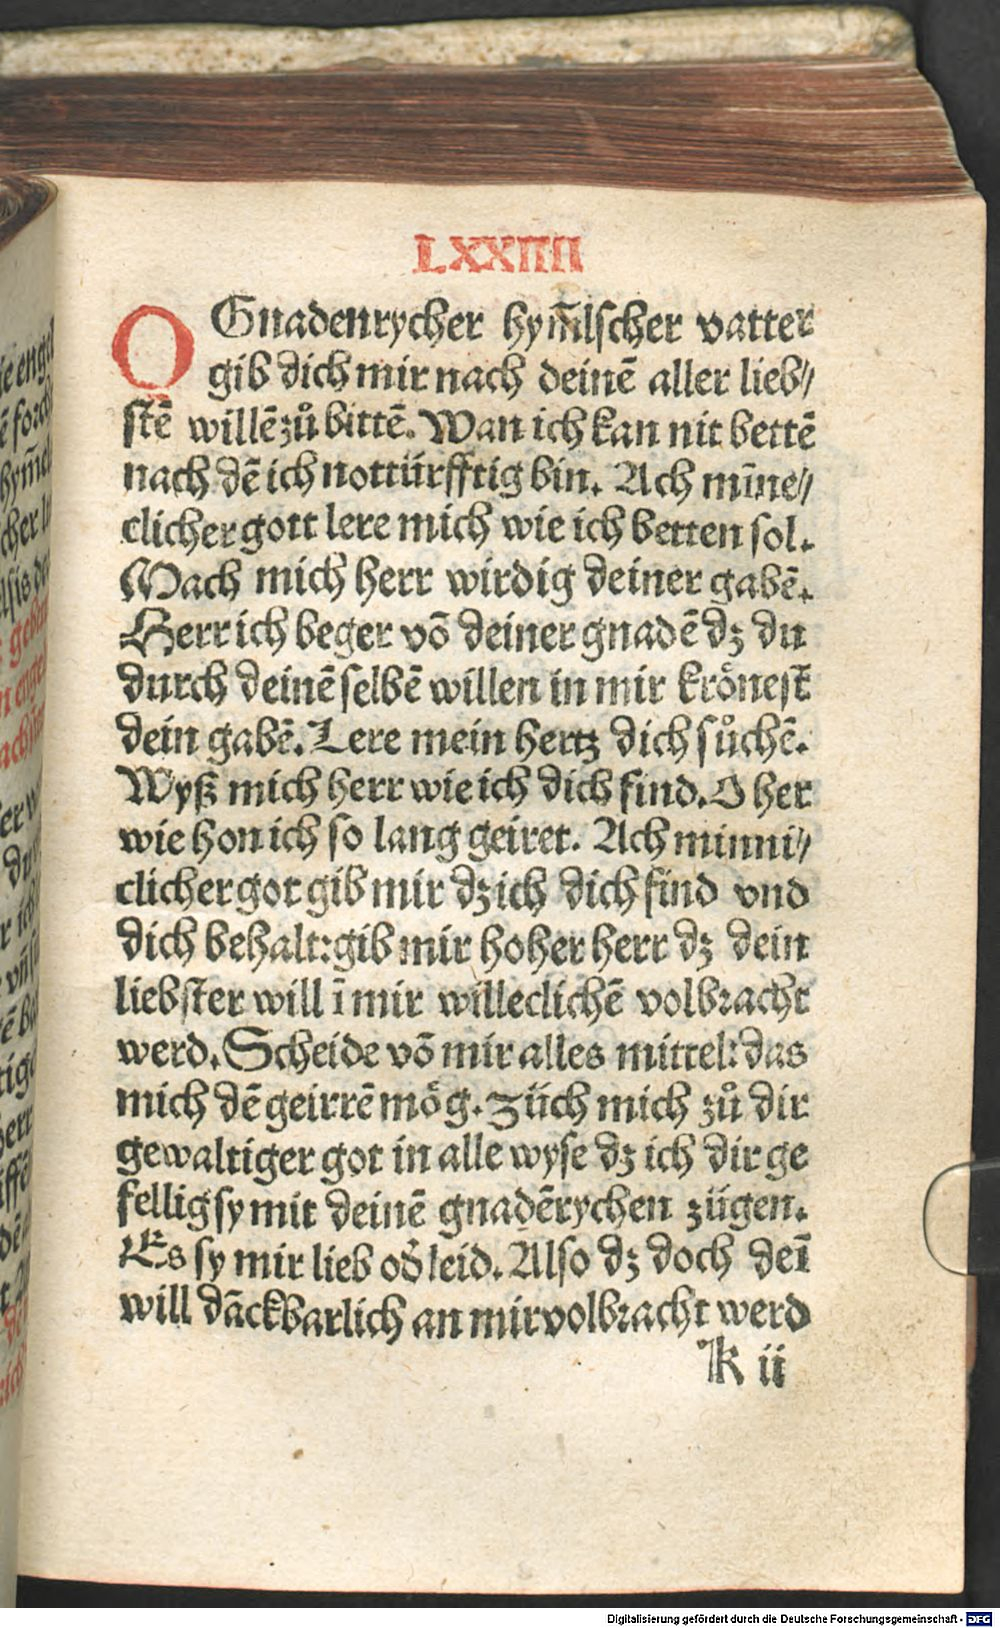 LXXIIII
O Gnadenrycher hym̄lscher vatter
gib dich mir nach deinē aller lieb⸗
stē willē zů bittē. Wan ich kan nit bettē
nach dē ich nottürfftig bin. Ach mīne⸗
clicher gott lere mich wie ich betten sol.
Mach mich herr wirdig deiner gabē.
Herr ich beger vō deiner gnadē dz du
durch deinē selbē willen in mir krönest
dein gabē. Lere mein hertz dich sůchē.
Wyß mich herr wie ich dich find. O her
wie hon ich so lang geirret. Ach minni⸗
clicher got gib mir dz ich dich find vnd
dich behalt: gib mir hoher herr dz dein
liebster will ī mir willeclichē volbracht
werd. Scheide vō mir alles mittel: das
mich dē geirrē mög. Züch mich zů dir
gewaltiger got in alle wyse dz ich dir ge
fellig sy mit deinē gnadērychen zügen.
Es sy mir lieb od' leid. Also dz doch deī
will dāckbarlich an mir volbracht werd
k ii
Digitalisierung gefördert durch die Deutsche Forschungsgemeinschaft - DFG